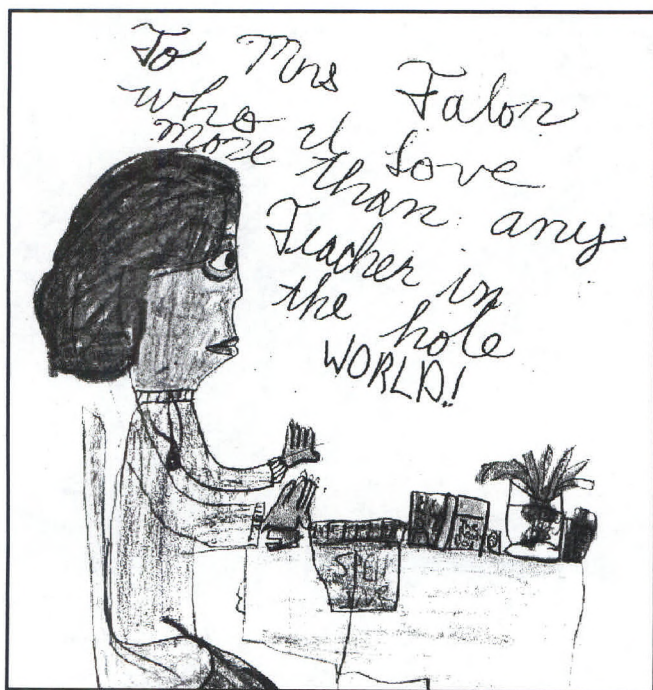 To Mrs Falon
who I Love
more than any
Teacher in
the hole
WORLD!